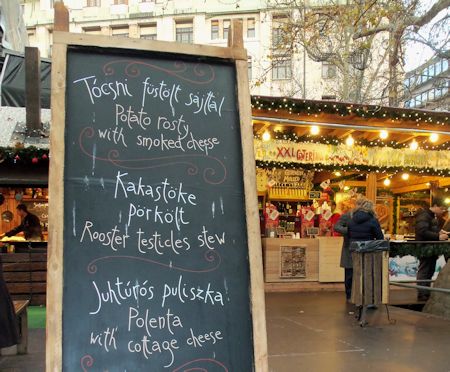 Tócsni füstölt sajttal
Potato rösty
with smoked cheese
Kakastöke
pörkölt
Rooster testicles stew
Juhtúrós puliszka
Polenta
with cottage cheese
XXL